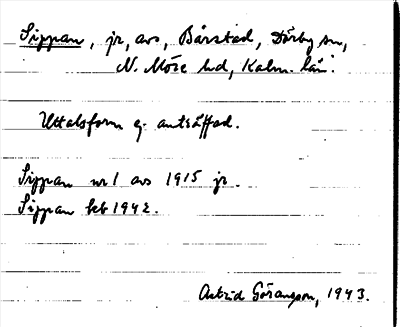 Sippan, jr, avs, Bårstad, Dörby sn,
N. Möre hd, Kalm. län.
Uttalsform ej anträffad.
Sippan nr 1 avs 1915 jr.
Sippan kb 1942.
Astrid Göransson, 1943.